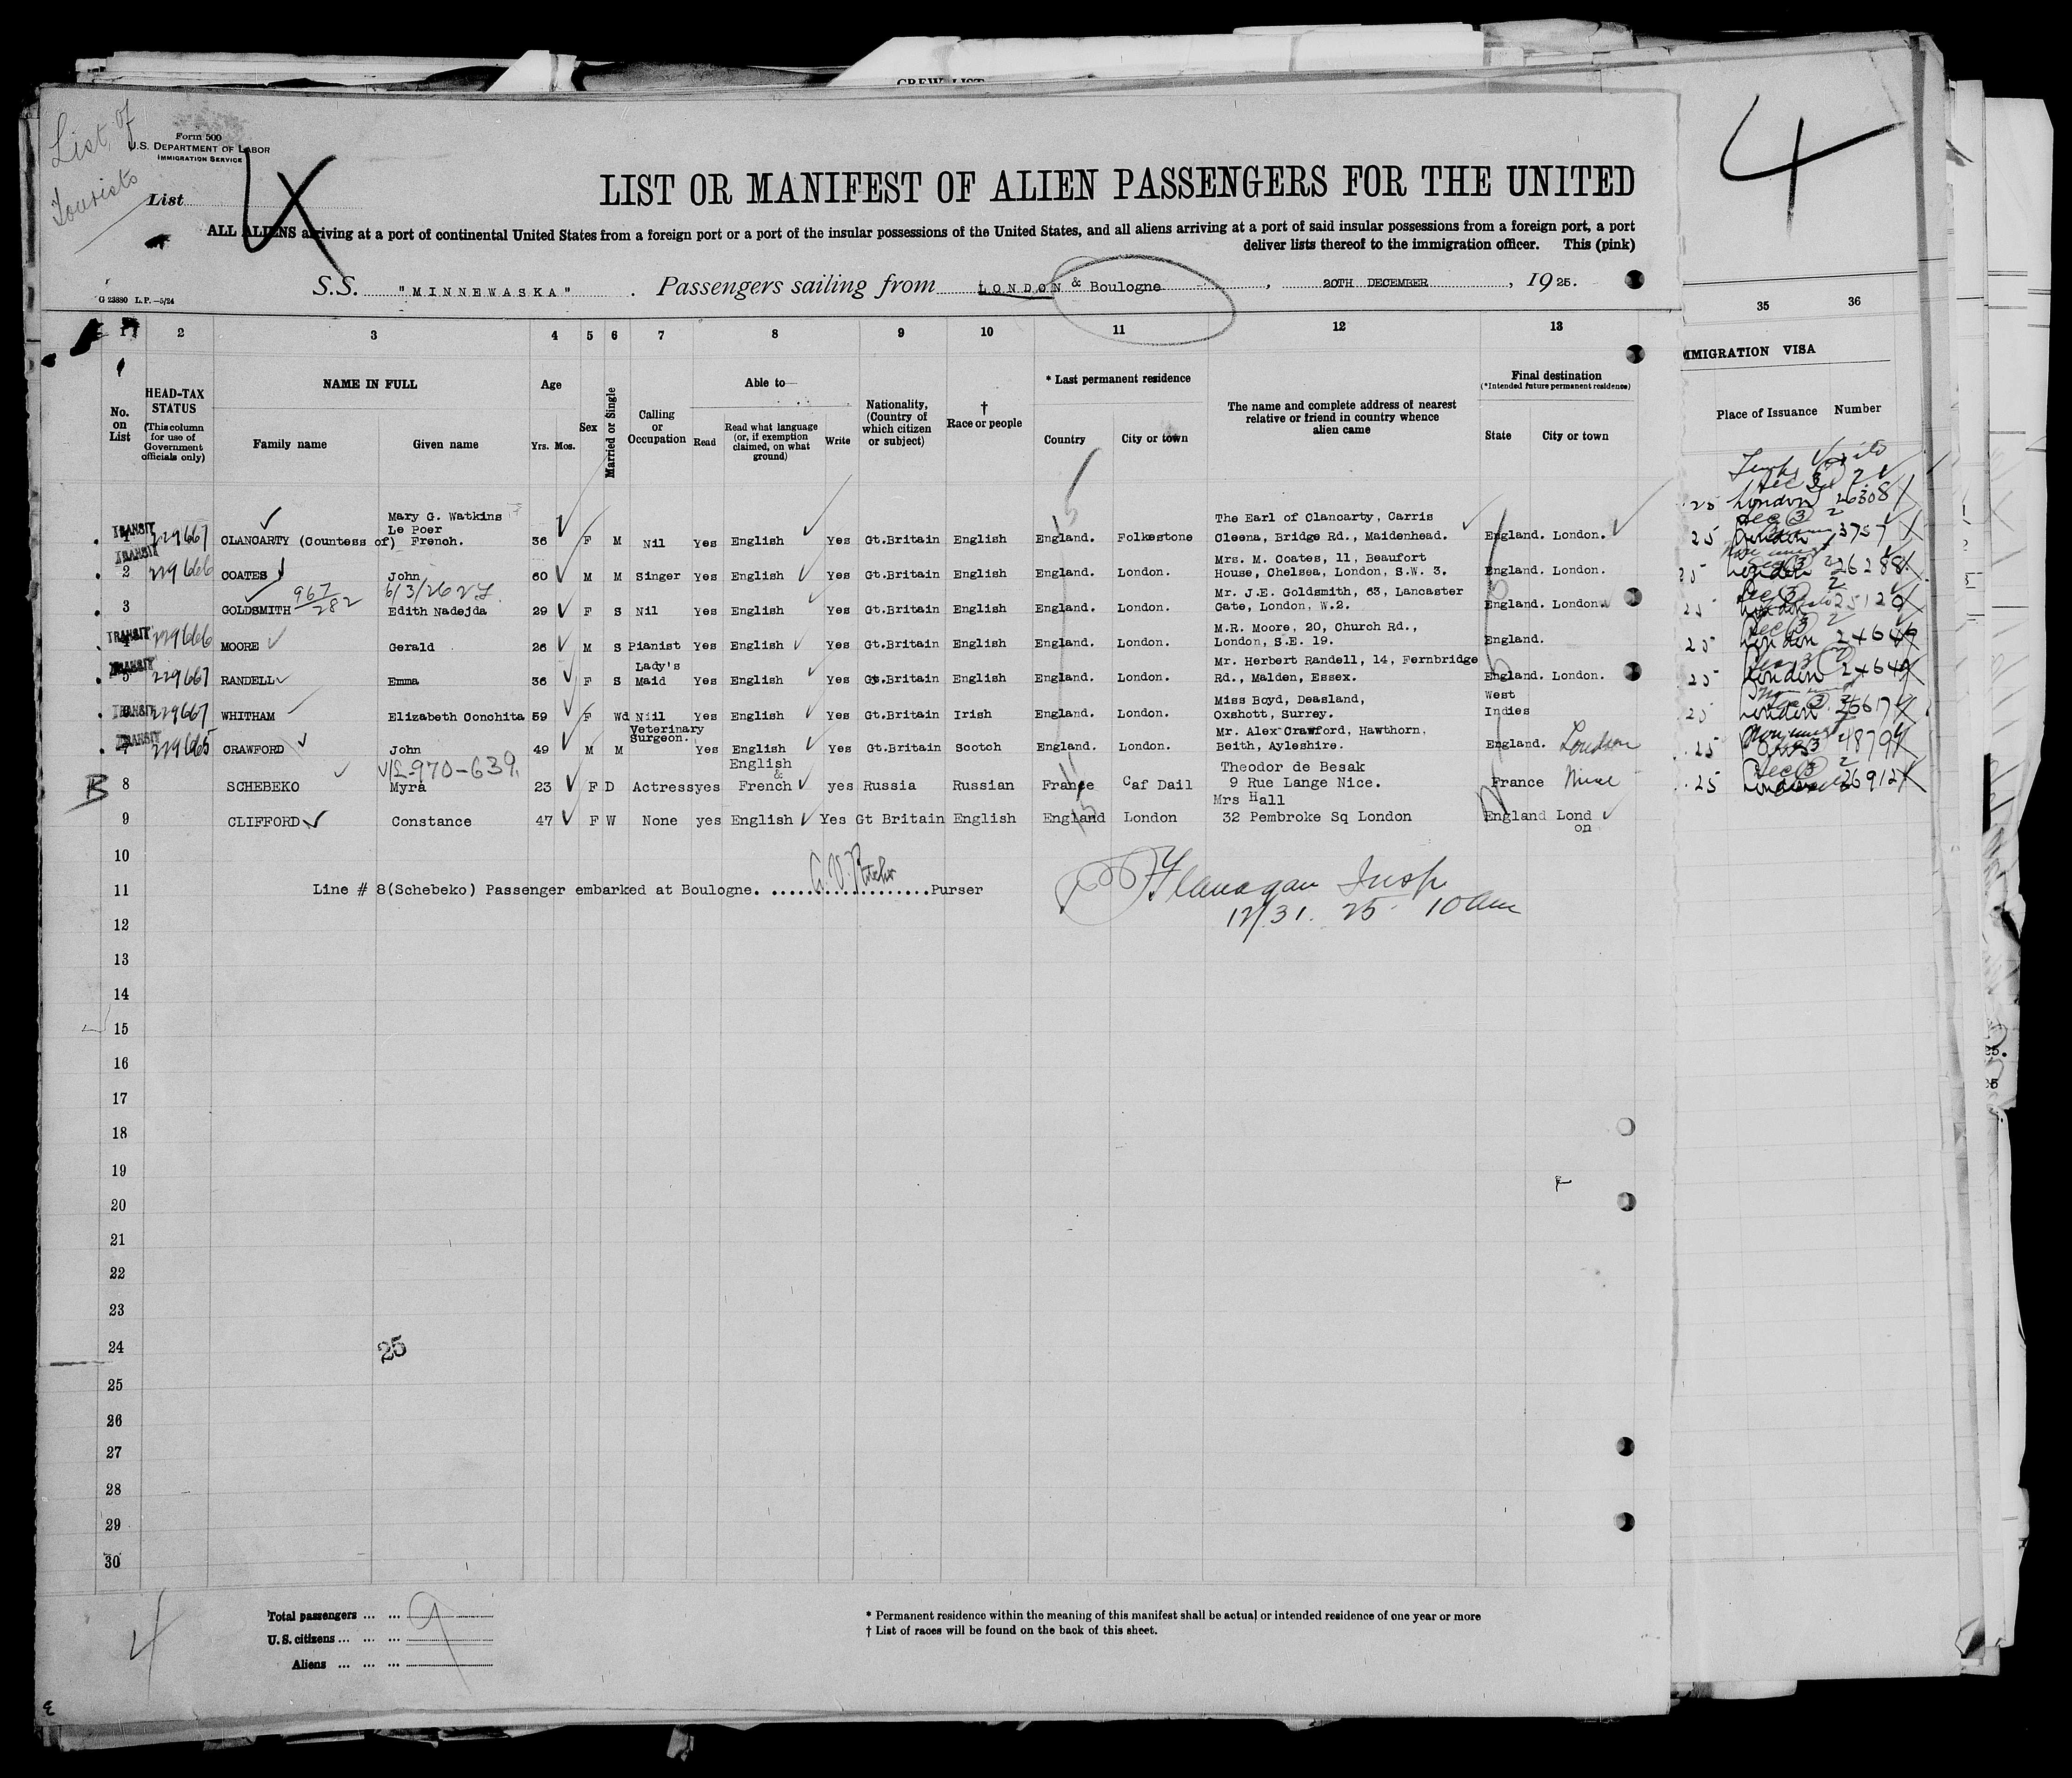 CREW LIST
List of
Tourists
Form 500
U.S. DEPARTMENT OF LABOR
IMMIGRATION SERVICE
List
4
LIST OR MANIFEST OF ALIEN PASSENGERS FOR THE UNITED
ALL ALIENS arriving at a port of continental United States from a foreign port or a port of the insular possessions of the United States, and all aliens arriving at a port of said insular possessions from a foreign port, a port
deliver lists thereof to the immigration officer. This (pink)
G 23880 L.P.—5/24
S.S. "MINNEWASKA". Passengers sailing from LONDON & Boulogne, 20TH DECEMBER, 1925.
1 2 3 4 5 6 7 8 9 10 11 12 13 35 36
No. on List
HEAD-TAX STATUS
(This column for use of Government officials only)
NAME IN FULL
Family name Given name
Age
Yrs. Mos.
Sex
Married or Single
Calling or Occupation
Able to—
Read
Read what language (or, if exemption claimed, on what ground)
Write
Nationality, (Country of which citizen or subject)
† Race or people
* Last permanent residence
Country City or town
The name and complete address of nearest relative or friend in country whence alien came
Final destination
(*Intended future permanent residence)
State City or town
IMMIGRATION VISA
Place of Issuance Number
Mary G. Watkins The Earl of Clancarty, Carris
Le Poer
TRANSIT 229667 CLANCARTY (Countess of) French. 36 F M Nil Yes English Yes Gt.Britain English England. Folkestone Cleena, Bridge Rd., Maidenhead. England. London.
TRANSIT Mrs. M. Coates, 11, Beaufort
2 229666 COATES John 60 M M Singer Yes English Yes Gt.Britain English England. London. House, Chelsea, London, S.W. 3. England. London.
967/282 6/3/26 Mr. J.E. Goldsmith, 63, Lancaster
3 GOLDSMITH Edith Nadejda 29 F S Nil Yes English Yes Gt.Britain English England. London. Gate, London, W.2. England. London.
M.R. Moore, 20, Church Rd.,
TRANSIT 229666 MOORE Gerald 26 M S Pianist Yes English Yes Gt.Britain English England. London. London, S.E. 19. England.
Lady's Mr. Herbert Randell, 14, Fernbridge
TRANSIT 229667 RANDELL Emma 36 F S Maid Yes English Yes Gt.Britain English England. London. Rd., Malden, Essex. England. London.
Miss Boyd, Deasland, West
TRANSIT 229667 WHITHAM Elizabeth Conchita 59 F Wd Niil Yes English Yes Gt.Britain Irish England. London. Oxshott, Surrey. Indies
Veterinary Surgeon. Mr. Alex Crawford, Hawthorn,
TRANSIT 229665 CRAWFORD John 49 M M Yes English Yes Gt.Britain Scotch England. London. Beith, Ayleshire. England. London
970-639 English & Theodor de Besak
B 8 SCHEBEKO Myra 23 F D Actress yes French yes Russia Russian France Caf Dail 9 Rue Lange Nice. France Nice
Mrs Hall
9 CLIFFORD Constance 47 F W None yes English Yes Gt Britain English England London 32 Pembroke Sq London England London
10
11 Line # 8(Schebeko) Passenger embarked at Boulogne. Purser
Flanagan Insp
12/31. 25 10am
12
13
14
15
16
17
18
19
20
21
22
23
24
25
25
26
27
28
29
30
Total passengers ... ... 9
U.S. citizens ... ... ...
Aliens ... ... ...
* Permanent residence within the meaning of this manifest shall be actual or intended residence of one year or more
† List of races will be found on the back of this sheet.
4